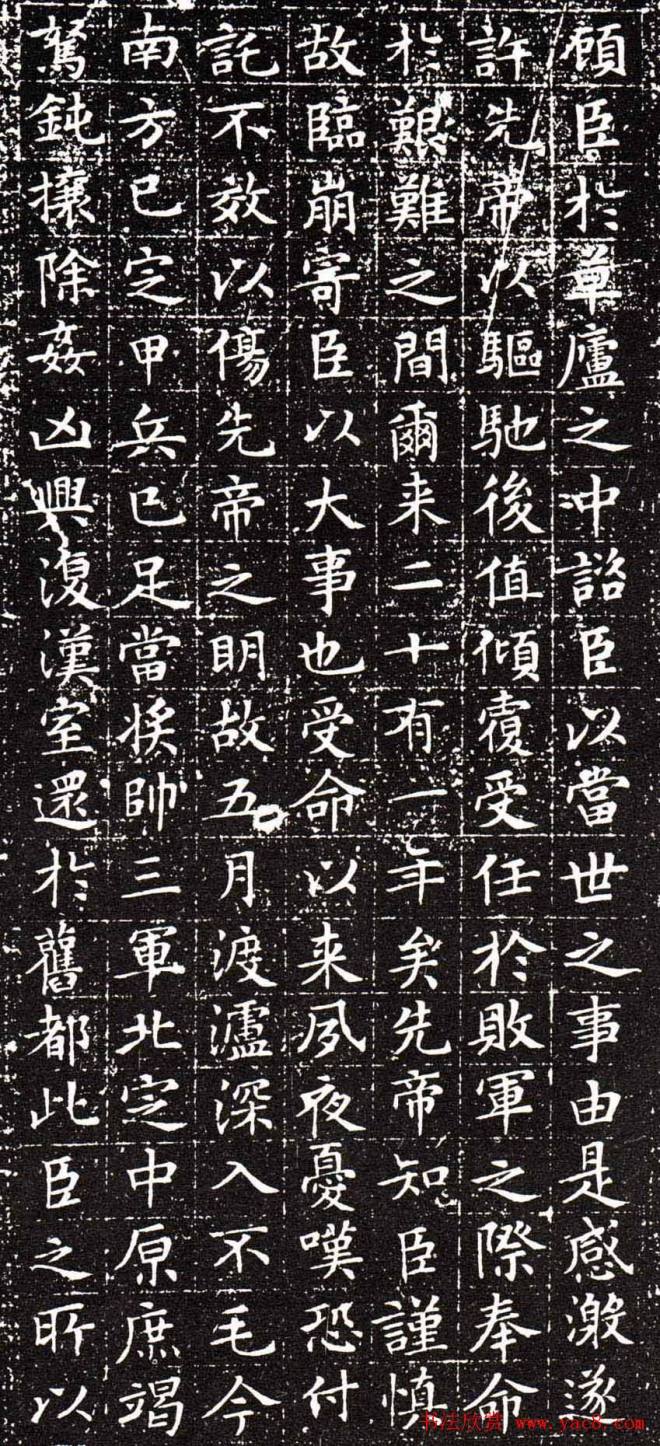 頋臣於草廬之冲諮臣以當世之事由是感激遂
許先帝以驅馳後值傾覆受任於敗軍之際奉命
於艱難之間爾来二十有一年矣先帝知臣謹慎
故臨崩寄臣以大事也受命以来夙夜憂嘆恐付
託不效以傷先帝之明故五月渡瀘深入不毛今
南方已定甲兵已足當奨帥三軍北定中原庶竭
駑鈍攘除姦凶興復漢室還於舊都此臣之所以
书法欣赏 www.yac8.com